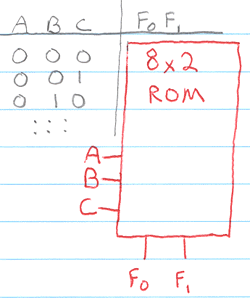 A B C F₀ F₁
0 0 0
0 0 1
0 1 0
: : :
8x2
ROM
A
B
C
F₀ F₁